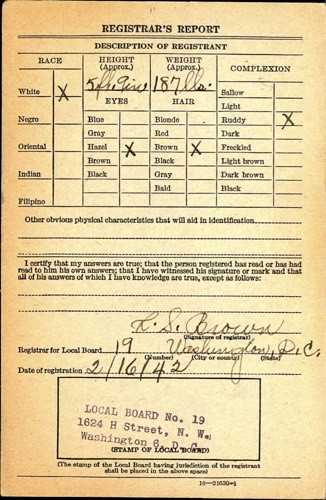 REGISTRAR'S REPORT
DESCRIPTION OF REGISTRANT
RACE HEIGHT (Approx.) WEIGHT (Approx.) COMPLEXION
5 ft. 9 in. 187 lbs. Sallow
White X EYES HAIR Light
Negro Blue Blonde Ruddy X
Gray Red Dark
Oriental Hazel X Brown X Freckled
Brown Black Light brown
Indian Black Gray Dark brown
Bald Black
Filipino
Other obvious physical characteristics that will aid in identification
I certify that my answers are true; that the person registered has read or has had
read to him his own answers; that I have witnessed his signature or mark and that
all of his answers of which I have knowledge are true, except as follows:
S. Brown
(Signature of registrar)
Registrar for Local Board 19 Washington, D.C.
(Number) (City or county) (State)
Date of registration 2/16/42
LOCAL BOARD No. 19
1624 H Street, N. W.
Washington 6, D. C.
(STAMP OF LOCAL BOARD)
(The stamp of the Local Board having jurisdiction of the registrant
shall be placed in the above space)
16—21630-1